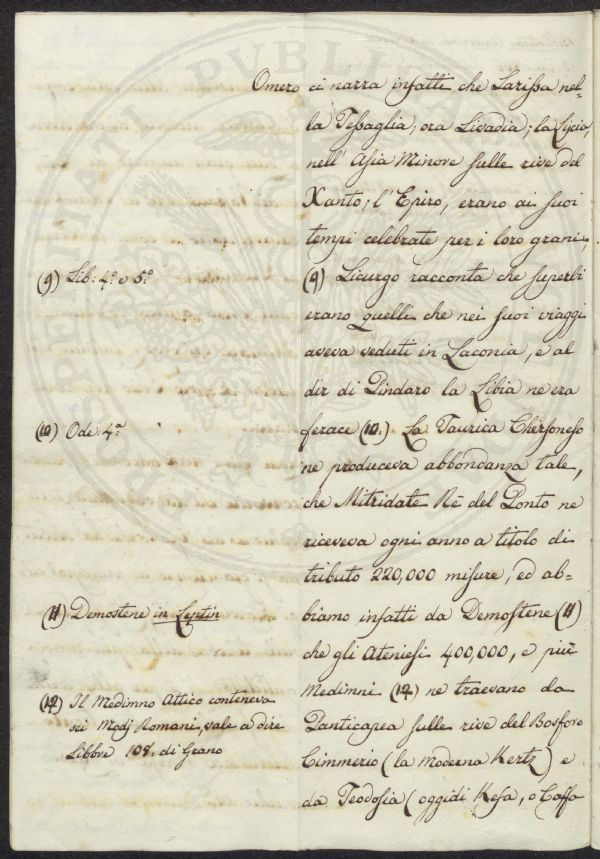 Omero ci narra infatti che Larissa nel=
la Tessaglia, ora Livadia; la Licia,
nell' Asia Minore sulle rive del
Xanto; l'Epiro, erano ai suoi
tempi celebrate per i loro grani,
(9) Lib: 4.º e 5.º
(9) Licurgo racconta che superbi
erano quelli che nei suoi viaggi
aveva veduti in Laconia, e al
dir di Pindaro la Libia ne era
(10) Ode 4.ª
ferace (10.) La Taurica Chersoneso
ne produceva abbondanza tale,
che Mitridate Rè del Ponto ne
riceveva ogni anno a titolo di
tributo 220,000 misure, ed ab=
(11) Demostene in Leptin
biamo infatti da Demostene (11)
che gli Ateniesi 400,000, e più
(12) Il Medimno Attico conteneva
sei Modj Romani, vale a dire
Libbre 108. di Grano
Medimni (12) ne traevano da
Panticapea sulle rive del Bosforo
Cimmerio (la moderna Kertz) e
da Teodosia (oggidi Kefa, o Caffa